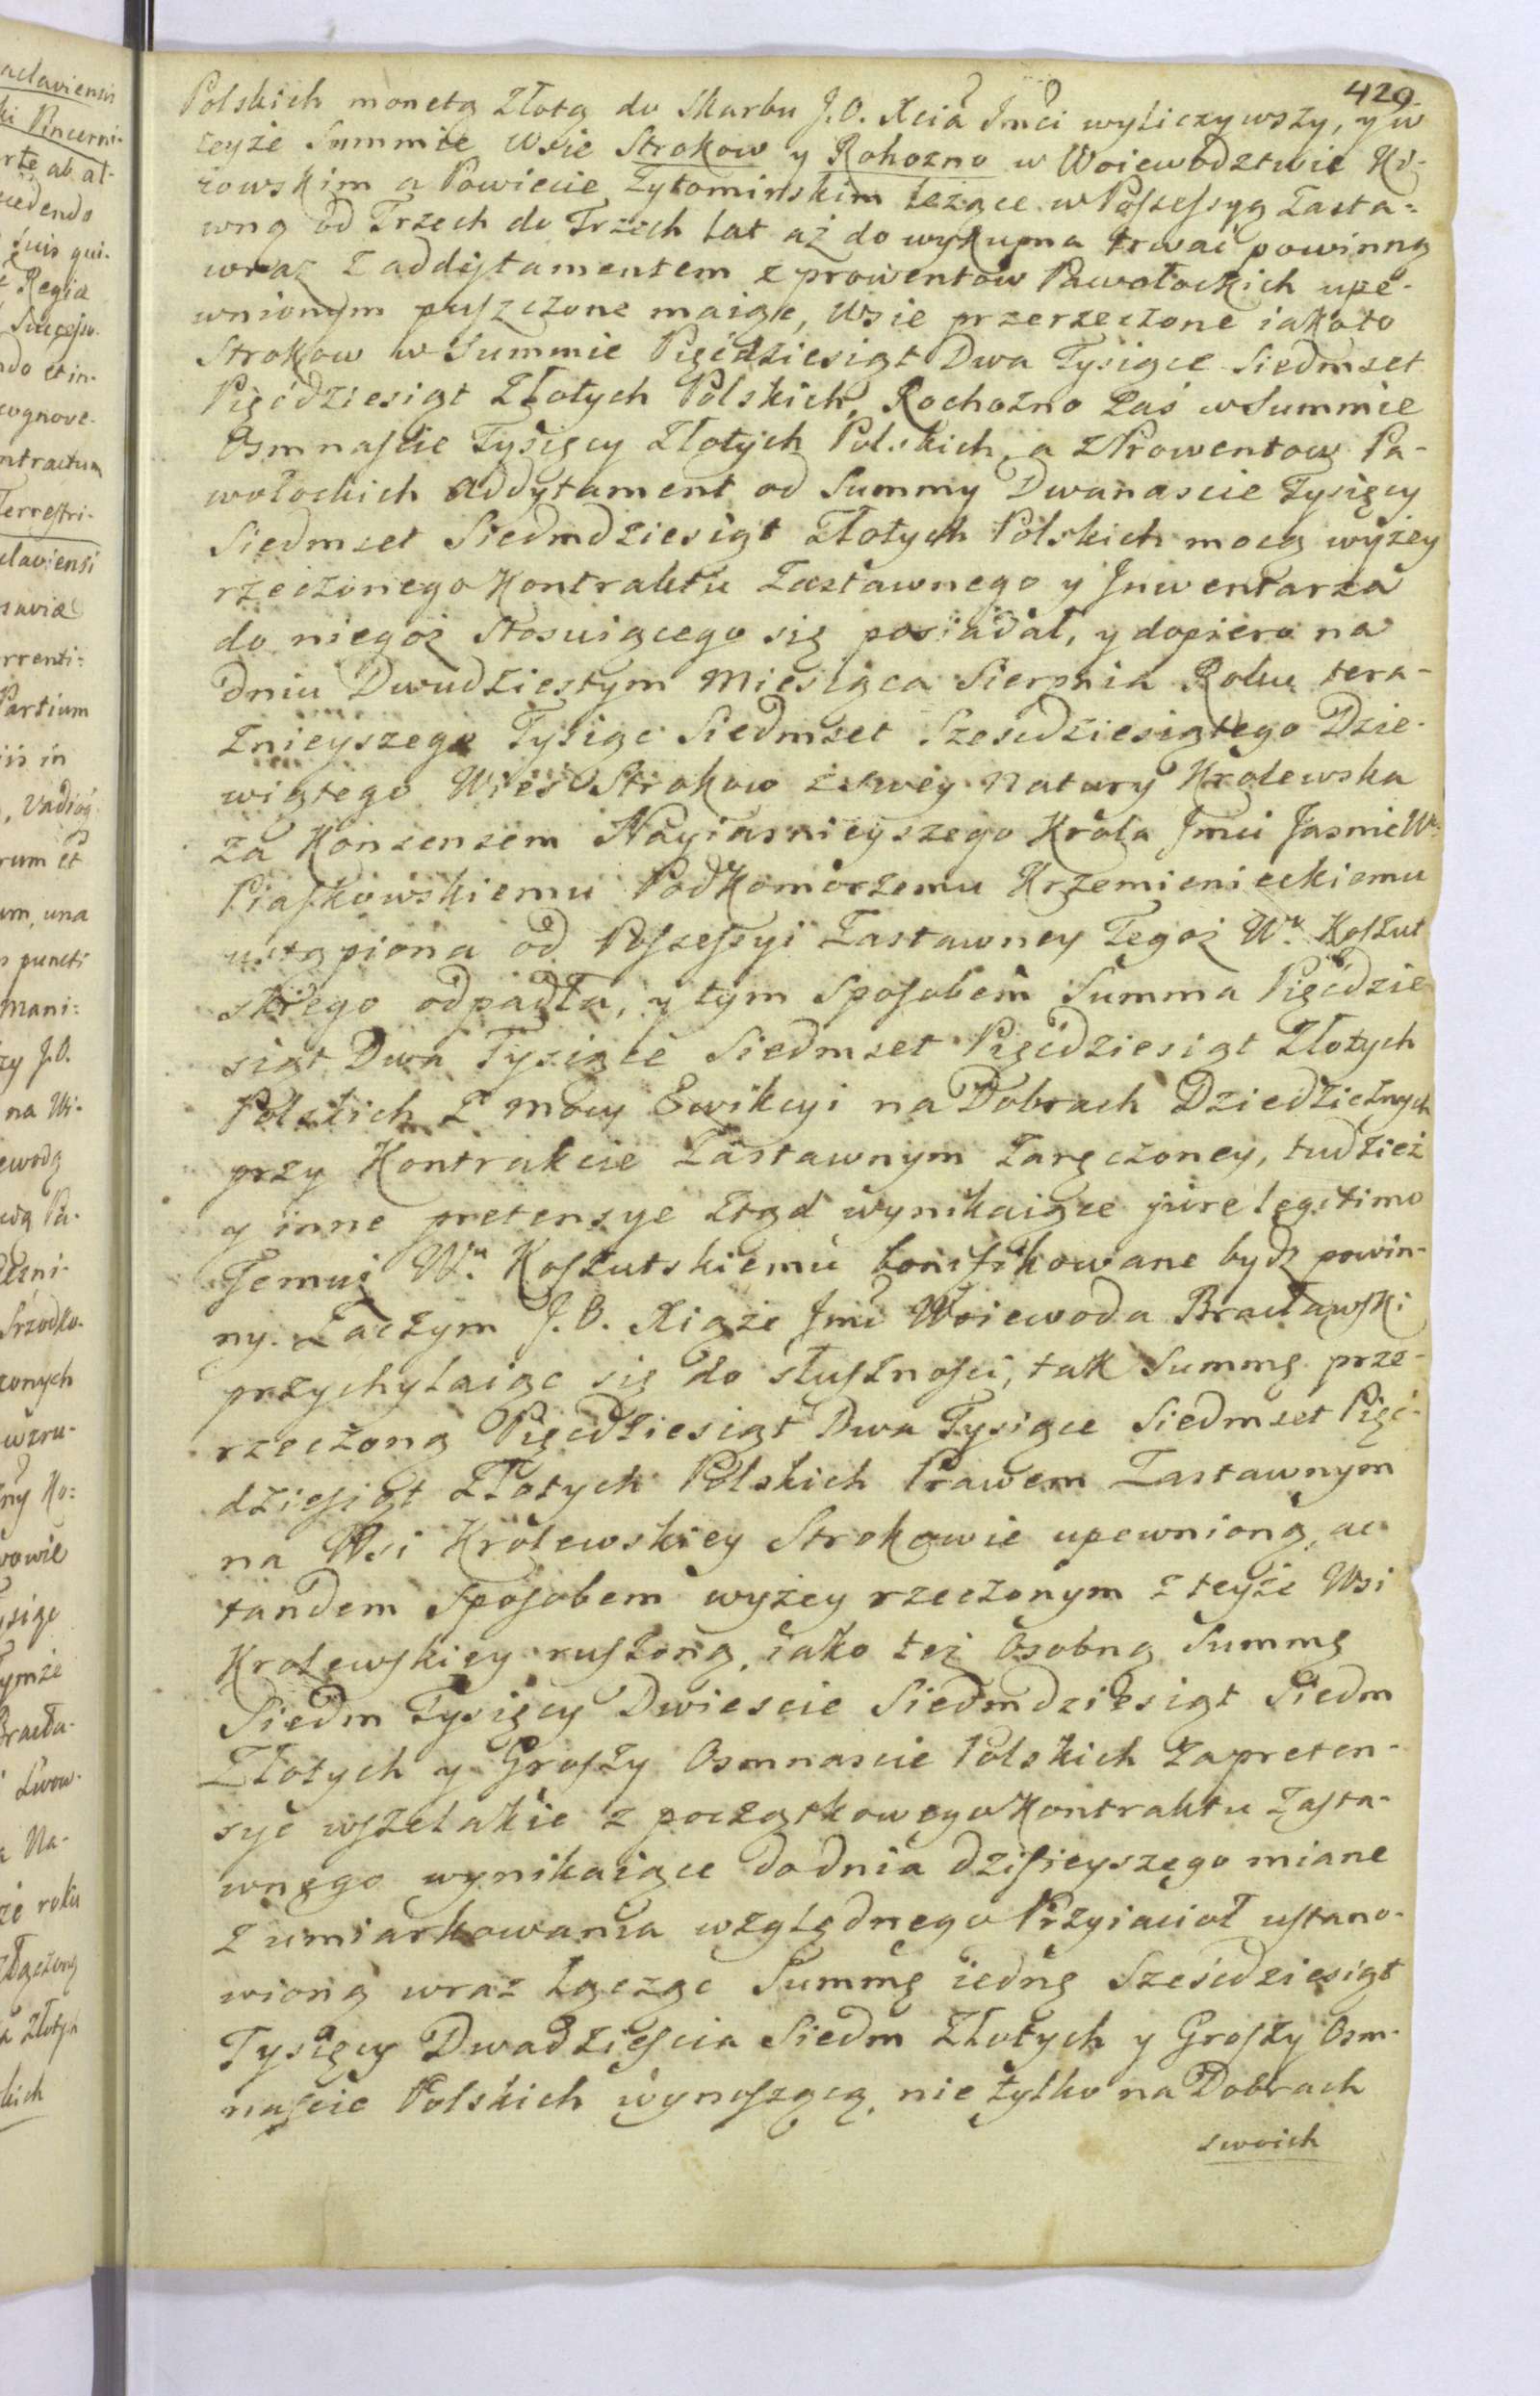 429.
Polskich monetą Złotą do Skarbu J.O. Xcia Jmci wyliczywszy, y w
teyże Summie Wsie Strokow y Rohozno w Woiewodztwie Ki-
iowskim a Powiecie Żytomirskim leżące w Possessyą Zasta-
wną od Trzech do Trzech lat aż do wykupna trwać powinną
wraz z addytamentem z prowentow Pawołockich upe-
wnionym puszczone maiąc, Wsie przerzeczone iakoto
Strokow w Summie Pięćdziesiąt Dwa Tysiące Siedmset
Pięćdziesiąt Złotych Polskich, Rochozno zaś w Summie
Osmnaście Tysięcy Złotych Polskich, a z Prowentow Pa-
wołockich addytament od Summy Dwanascie Tysięcy
Siedmset Siedmdziesiąt Złotych Polskich mocą wyżey
rzeczonego Kontraktu Zastawnego y Jnwentarza
do niegoż stosuiącego się posiadał, y dopiero na
dniu Dwudziestym Miesiąca Sierpnia Roku tera-
znieyszego Tysiąc Siedmset Szescdziesiątego Dzie-
wiątego Wieś Strokow z swey Natury Krolewska
za Konsensem Nayiasnieyszego Krola Jmci Jasnie W.
Piaskowskiemu Podkomorzemu Krzemienieckiemu
ustąpiona od Possessyi Zastawney Tegoż Wo Koszut
skiego odpadła, y tym Sposobem Summa Pięćdzie
siąt Dwa Tysiące Siedmset Pięćdziesiąt Złotych
Polskich z mocy Ewikcyi na Dobrach Dziedzicznych
przy Kontrakcie Zastawnym zaręczoney, tudzież
y inne pretensye ztąd wynikaiące jure legitimo
Temuż Wu Koszutskiemu bonifikowane bydz powin-
ny. Zaczym J.O. Xiąże Jmc Woiewoda Bracławski
przychylaiąc się do słuszności, tak Summę prze-
rzeczoną Pięćdziesiąt Dwa Tysiące Siedmset Pięć-
dziesiąt Złotych Polskich Prawem Zastawnym
na Wsi Krolewskiey Strokowie upewnioną, ac
tandem Sposobem wyżey rzeczonym z teyże Wsi
Krolewskiey ruszoną, iako też osobną Summę
Siedm Tysięcy Dwieście Siedmdziesiąt Siedm
Złotych y Groszy Osmnascie Polskich za preten-
sye wszelakie z początkowego Kontraktu Zasta-
wnego wynikaiące do dnia dzisieyszego miane
z umiarkowania względnego Przyiacioł ustano-
wioną wraz łącząc Summę iednę Sześćdziesiąt
Tysięcy Dwadzieścia Siedm Złotych y Groszy Osm-
naście Polskich wynoszącą, nie tylko na Dobrach
swoich